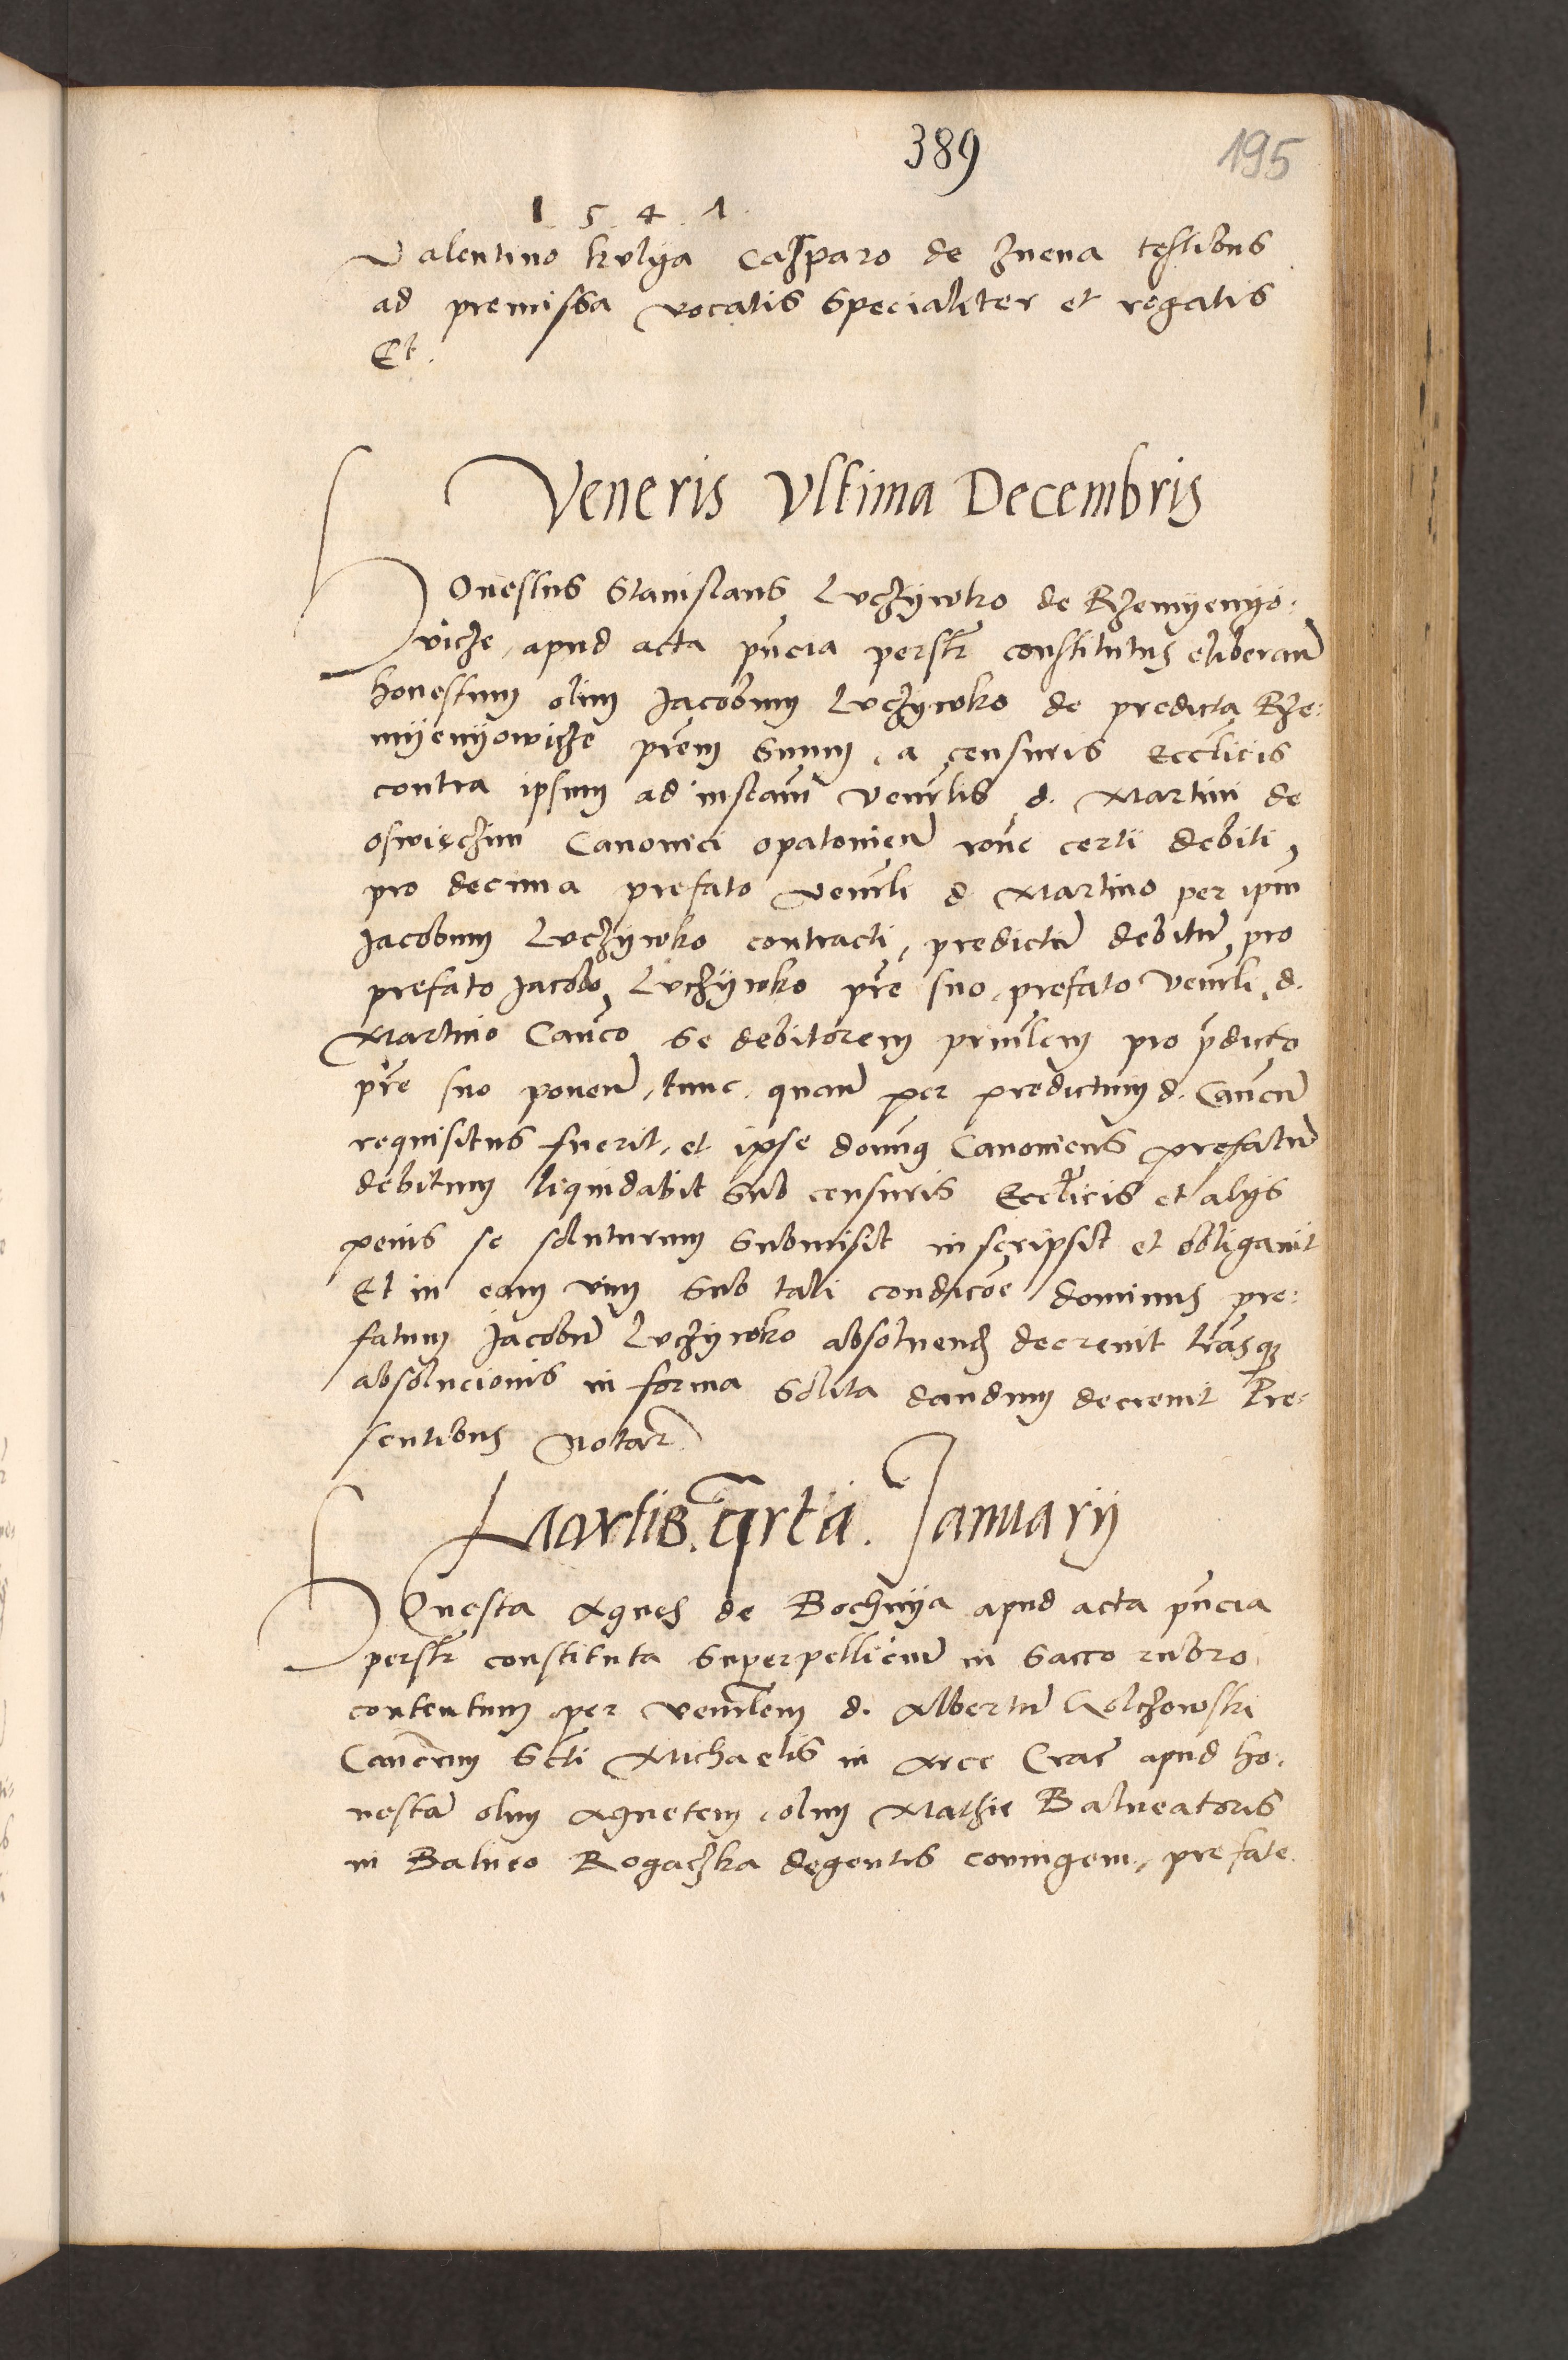 389
195
1 5 4 1
Valentino kulya Casparo de Znena testibus
ad premissa vocatis specialiter et rogatis
Et.
Veneris Ultima Decembris
Honestus Stanislaus Luczywko de Rzemyenyo:
vicze, apud acta pncia persolr constitutus eliberan
honestum olim Jacobum Luczywko de predicta Rze:
myenyowicze prem suum, a censuris Ecclicis
contra ipsum ad instam venlis d. Martini de
oswieczim Canonici opatovien rone certi debiti
pro decima prefato venli d Martino per ipm
Jacobum Luczywko contracti, predictu debitu pro
prefato Jacobo Luczywko pre suo, prefato venli d.
Martino Canco se debitorem prinlem pro pdicto
pre suo ponen, tunc, quan per predictum d. Cancu
requisitus fuerit, et ipse domnus Canonicus prefatu
debitum liquidabit sub censuris Ecclicis et alys
penis se soluturum submisit inscripsit et obligavit
Et in eam vim sub tali condicoe dominus pre:
fatum Jacobu Luczywko absoluend decrevit lrasq
absolucionis in forma solita dandum decrevit Pre:
sentibus Notar
Martis. qrta. Januarij
Honesta Agnes de Bochnya apud acta pncia
persolr constituta superpelliciu in sacco rubro
contentum per venlem d. Albertu
Canicum scti Michaelis in Arce Crac apud ho:
nesta olim Agnetem, olim Mathie Balneatoris
in Balneo Rogaczka degentis coniugem, prefate